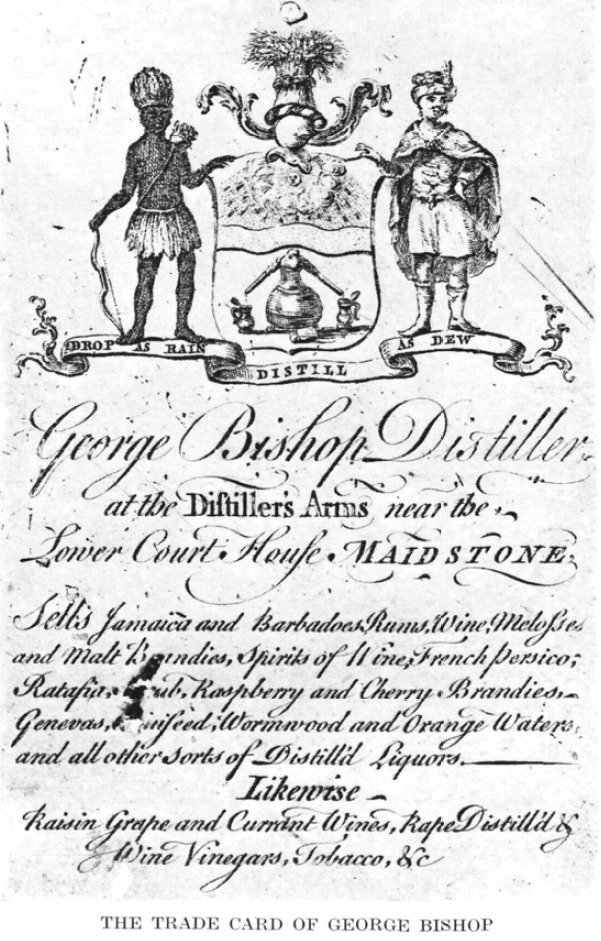 DROP AS RAIN
DISTILL
AS DEW
George Bishop Distiller
at the Distiller's Arms near the
Lower Court House MAIDSTONE,
Sells Jamaica and Barbadoes Rums, Wine, Melosses
and Malt Brandies, Spirits of Wine, French Persico,
Ratafia, Raspberry and Cherry Brandies,
Genevas, Wormwood and Orange Waters,
and all other Sorts of Distill'd Liquors.
Likewise
Raisin Grape and Currant Wines, Rape Distill'd &
Wine Vinegars, Tobacco, &c
THE TRADE CARD OF GEORGE BISHOP